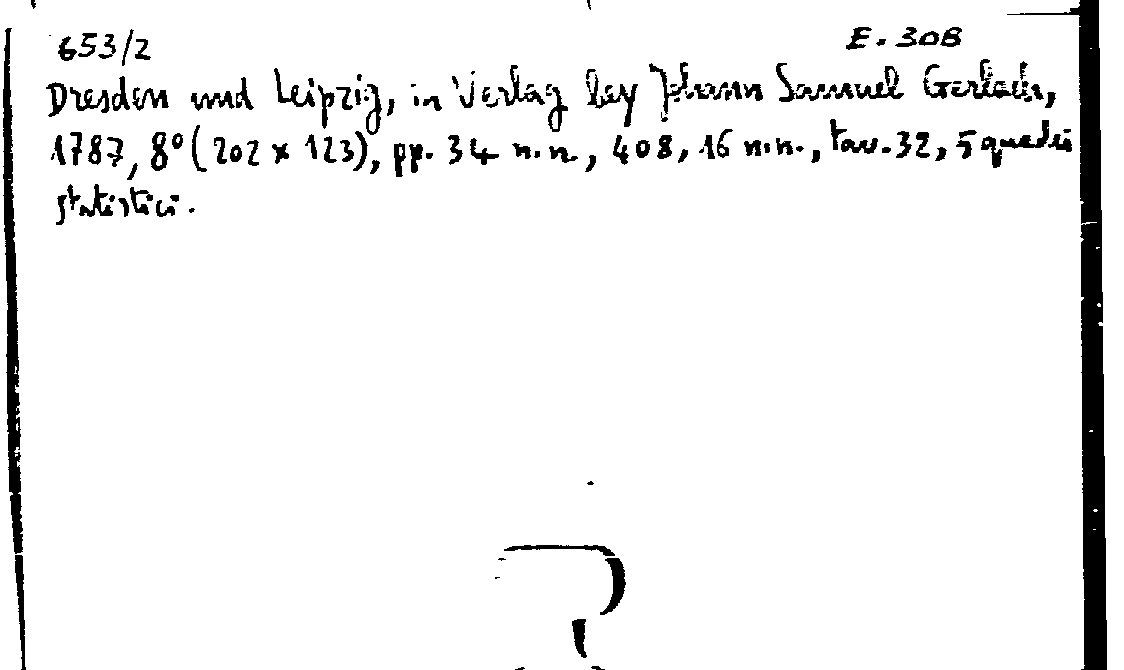 653/2 E. 308
Dresden und Leipzig, in Verlag bey Johann Samuel Gerlach,
1787, 8° (202 x 123), pp. 34 n.n., 408, 16 n.n., tav. 32, 5 quadri
statistici.